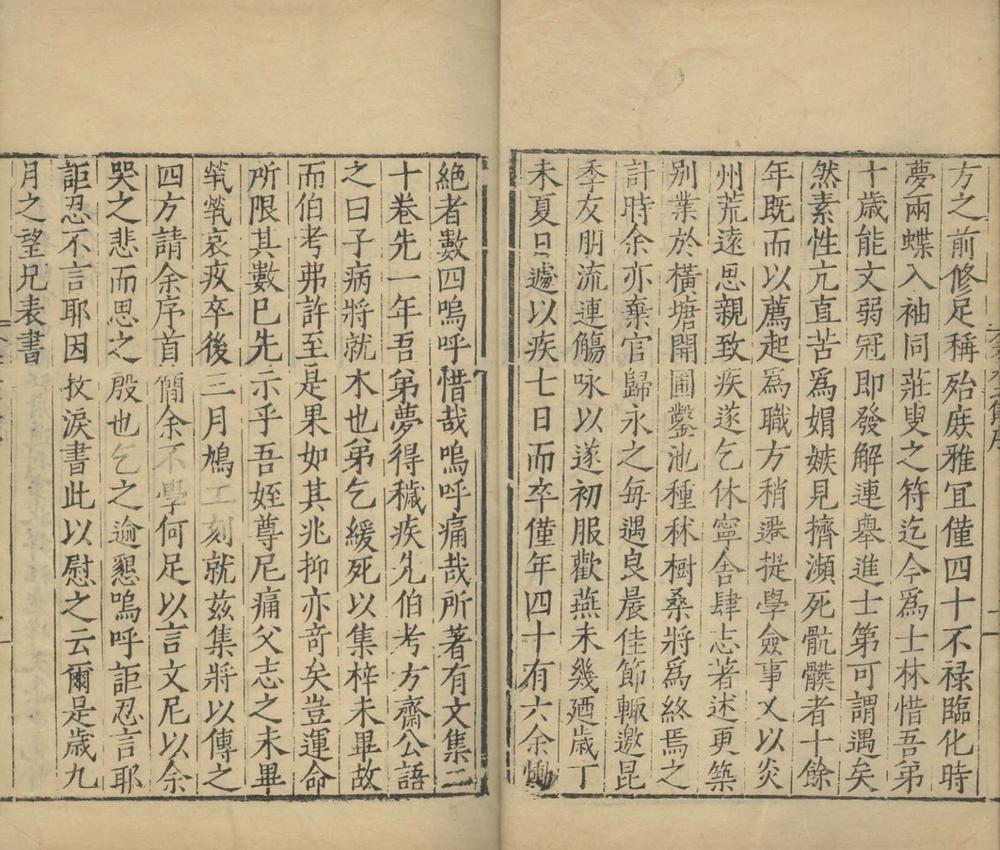 方之前修足稱殆庶雅冝僅四十不禄臨化時
夢兩蝶入袖同莊叟之符迄今爲士林惜吾弟
十歲能文弱冠即發解連舉進士第可謂遇矣
然素性亢直苦爲媢嫉見擠瀕死骯髒者十餘
年既而以薦起爲職方稍遷提學僉事乂以炎
州荒遠思親致疾遂乞休寧舎肆志著述更築
別業於橫塘開圃鑿池種秫樹桑將爲終焉之
計時余亦棄官歸永之每遇良晨佳節輙邀昆
季友朋流連觴咏以遂初服歡燕未幾廼歲丁
未夏日遽以疾七日而卒僅年四十有六余慟
絶者數四嗚呼惜哉嗚呼痛哉所著有文集二
十巻先一年吾弟夢得穢疾先伯考方齋公語
之曰子病將就木也弟乞緩死以集梓未畢故
而伯考弗許至是果如其兆抑亦竒矣豈運命
所限其數已先示乎吾姪尊尼痛父志之未畢
煢煢哀疚卒後三月鳩工刻就兹集將以傳之
四方請余序首簡余不學何足以言文尼以余
哭之悲而思之殷也乞之逾懇嗚呼詎忍言耶
詎忍不言耶因抆淚書此以慰之云爾是歲九
月之望兄表書